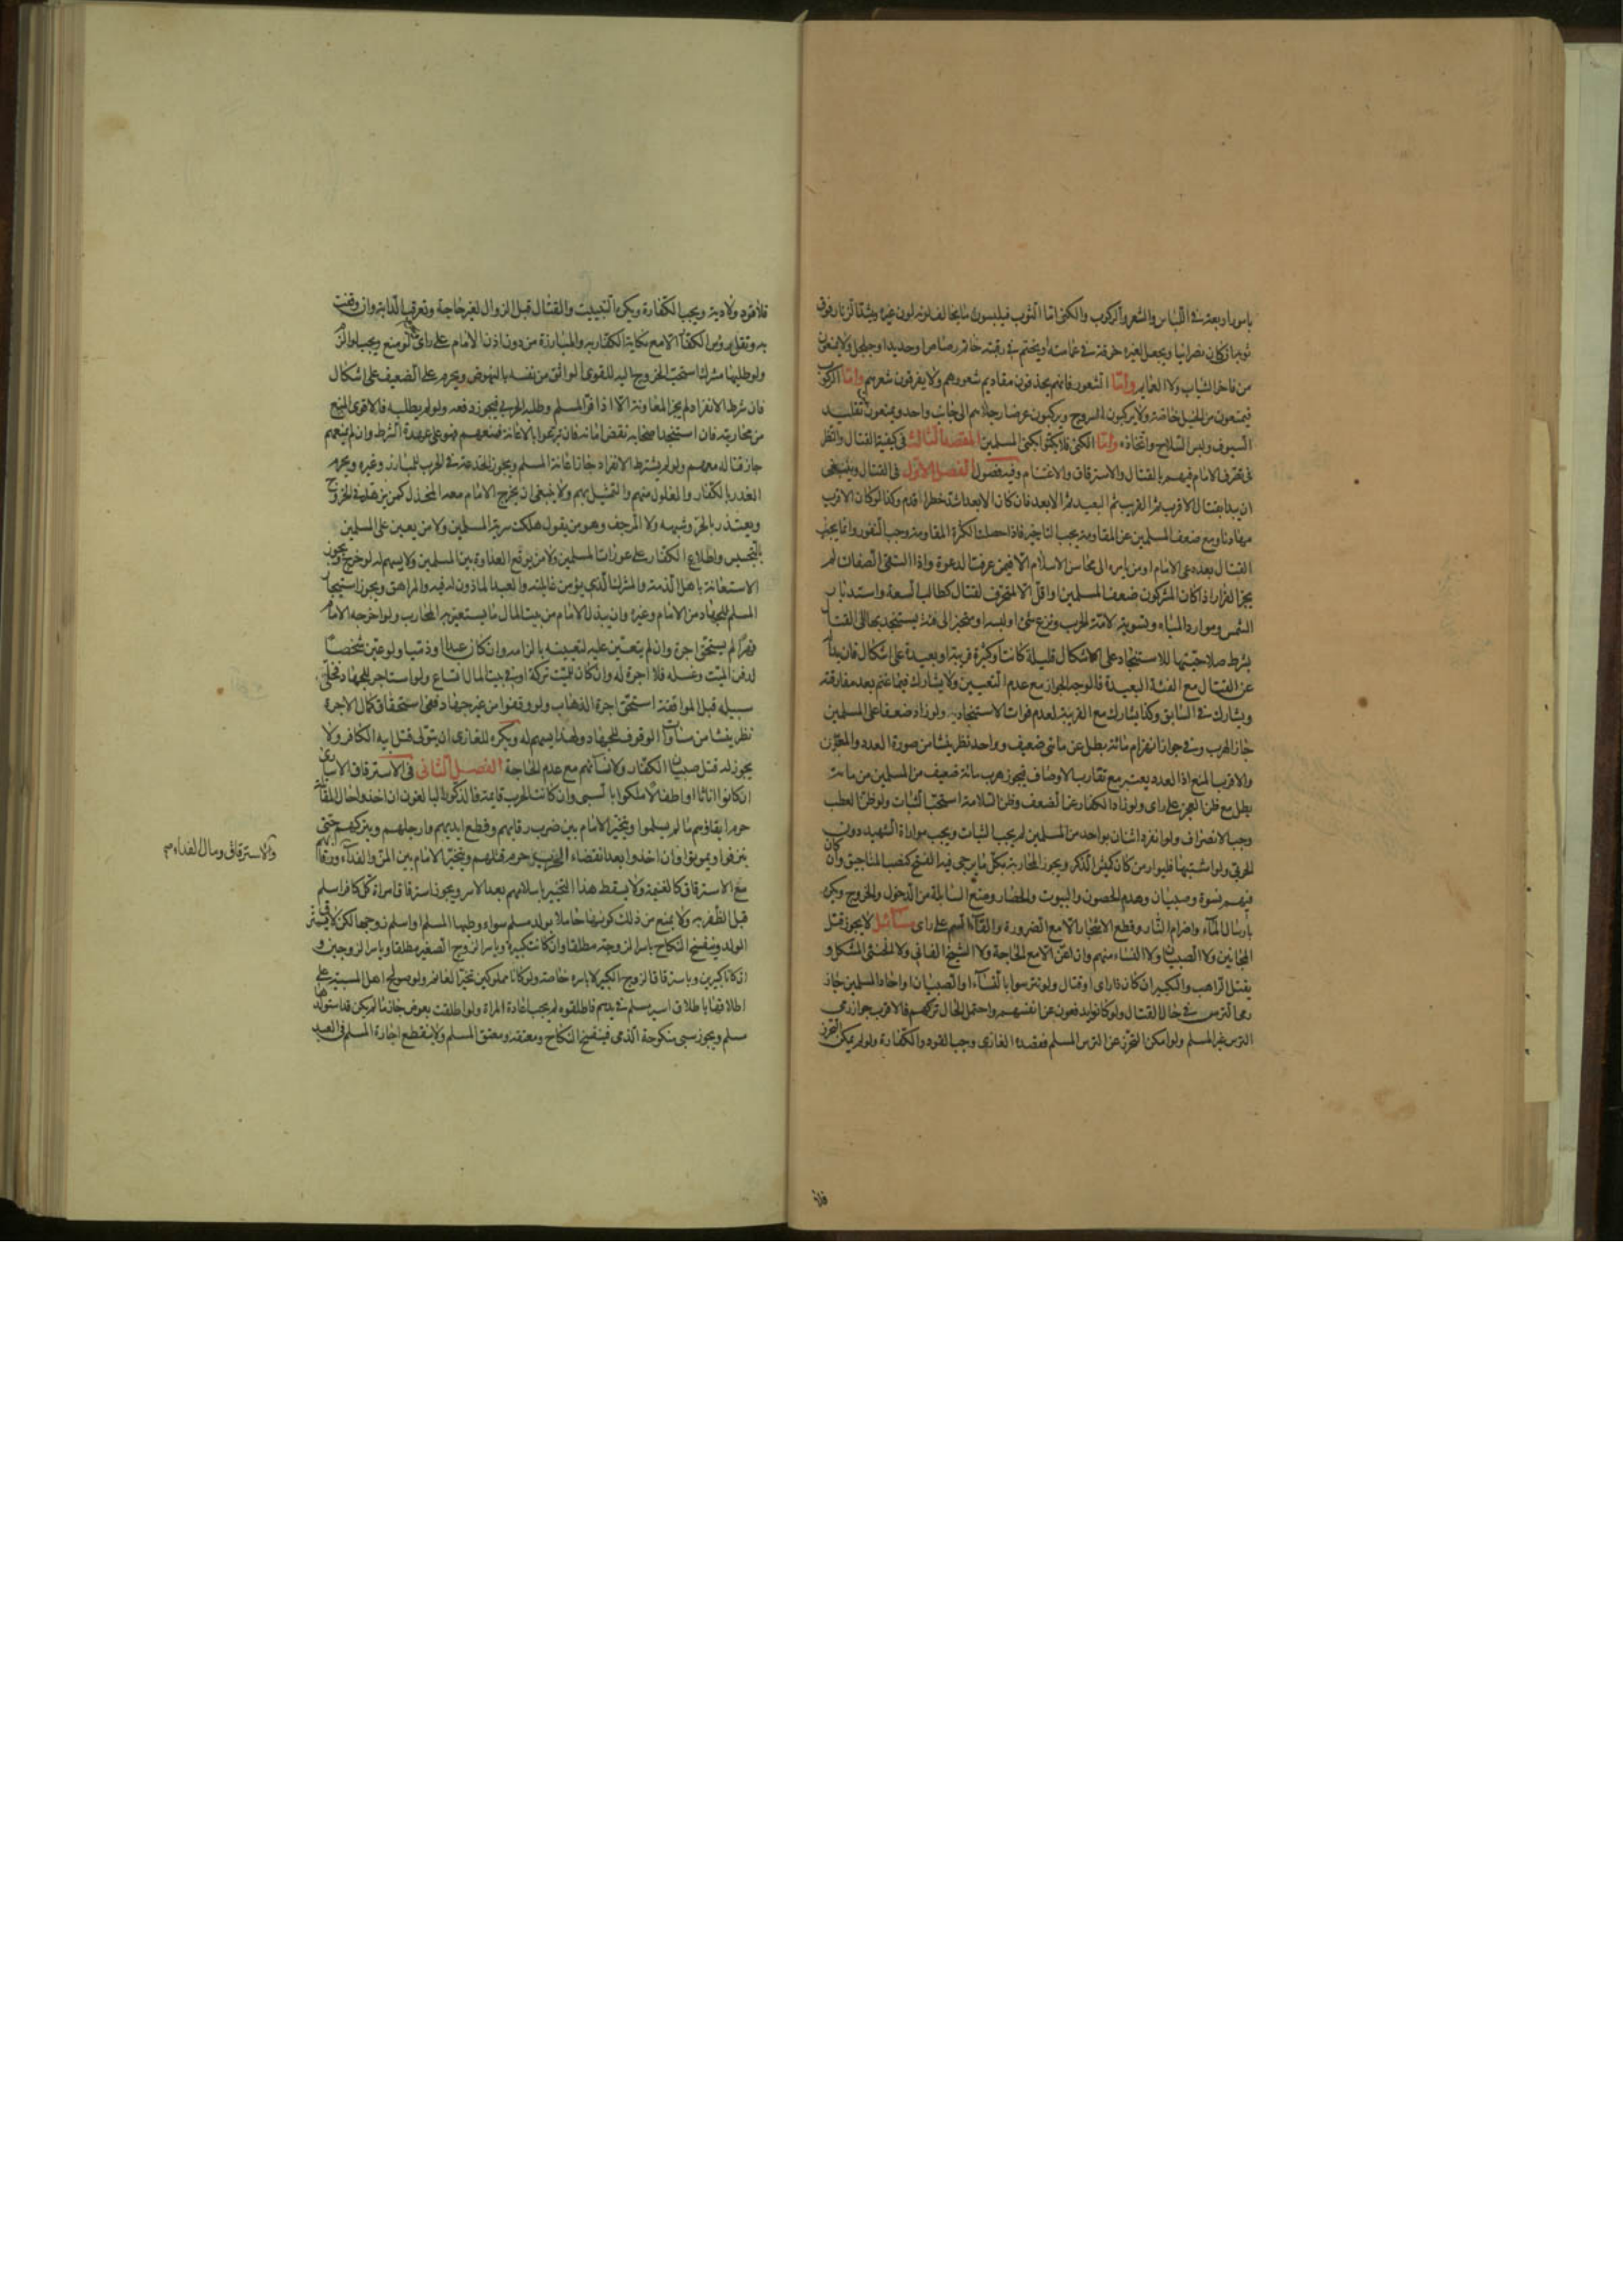 بامور اربعة في اللباس والشعر والركوب والكنى اما الثوب فيلبسون ما يخالف لونه لون غيره ويشد الزنار فوق
ثوبه ان كان نصرانيا ويجعل لغيره خرقة في عمامته او يختم في رقبته خاتم رصاص او حديد او جلجل ولا يمنعون
من فاخر الثياب ولا العمايم واما الشعور فانهم يحذفون مقاديم شعورهم ولا يفرقون شعرهم واما الركوب
فيمنعون من الخيل خاصة ولا يركبون السروج ويركبون عرضا رجلاهم الى جانب واحد ويمنعون تقليد
السيوف ولبس السلاح واتخاذه واما الكنى فلا يكنوا بكنى المسلمين المقصد الثالث في كيفية القتال والنظر
في تصرف الامام فيهم بالقتال والاسترقاق والاغتنام وفيه فصول الفصل الاول في القتال وينبغي
ان يبدأ بقتال الاقرب ثم القريب ثم البعيد ثم الابعد فان كان الابعد اشد خطرا قدم وكذا لو كان الاقرب
مهادنا ومع ضعف المسلمين عن المقاومة يجب التاخير فاذا حصلت الكثرة المقاومة وجب النفور وانما يجوز
القتال بعد دعاء الامام او من يامره الى محاسن الاسلام الا فيمن عرف الدعوة واذا التقى الصفان لم
يجز الفرار اذا كان المشركون ضعف المسلمين او اقل الا لمتحرف لقتال كطالب السعة واستدبار
الشمس وموارد المياه وتسوية لامة الحرب ونزع شئ او لبسه او متحيز الى فئة يستنجد بها في القتال
بشرط صلاحيتها للاستنجاد على اشكال قليلة كانت او كثيرة قريبة او بعيدة على اشكال فان بدا له
عن القتال مع الفئة البعيدة فالوجه الجواز مع عدم التعيين ولا يشارك فيما غنم بعد مفارقته
ويشارك في السابق وكذا يشارك مع القريبة لعدم فوات الاستنجاد به ولو زاد ضعف على المسلمين
جاز الهرب وفي جواز انهزام مائة بطل عن مأتي ضعيف وواحد نظر ينشأ من صورة العدد والمعنى
والاقرب المنع اذ العدد يعتبر مع تقارب الاوصاف فيجوز هرب مائة ضعيف من المسلمين من مائة
بطل مع ظن العجز على راى ولو زاد الكفار عن الضعف وظن السلامة استحب الثبات ولو ظن العطب
وجب الانصراف ولو انفرد اثنان بواحد من المسلمين لم يجب الثبات ويجب مواراة الشهيد دون
الحربي ولو اشتبها فليوار من كان كميش الذكر ويجوز المحاربة بكل ما يرجى فيه الفتح كنصب المناجيق وان كان
فيهم نسوة وصبيان وهدم الحصون والبيوت والحصار ومنع السابلة من الدخول والخروج ويكره
بارسال الماء واضرام النار وقطع الاشجار الا مع الضرورة والقاء السم على راى مسائل لا يجوز قتل
المجانين ولا الصبيان ولا النساء منهم وان اعن الا مع الحاجة ولا الشيخ الفاني ولا الخنثى المشكل و
يقتل الراهب والكبير ان كان ذا راى او قتال ولو تترسوا بالنساء او الصبيان او احاد المسلمين جاز
رمي الترس في حال القتال ولو كانوا يدفعون عن انفسهم واحتمل الحال تركهم فالاقرب جواز رمي
الترس غير المسلم ولو امكن التحرز عن الترس المسلم فقصده الغازي وجب القود والكفارة ولو لم يمكن التحرز
فلا
فلا قود ولا دية ويجب الكفارة ويكره التبييت والقتال قبل الزوال لغير حاجة وتعرقب الدابة وان وقفت
به ونقل رؤس الكفار الا مع نكاية الكفار به والمبارزة من دون اذن الامام على راى ويحرم لو منع ويجب لو الزم
ولو طلبها مشرك استحب الخروج اليه للقوى الواثق من نفسه بالنهوض ويحرم على الضعيف على اشكال
فان شرط الانفراد لم يجز المعاونة الا اذا فر المسلم وطلبه الحربي فيجوز دفعه ولو لم يطلبه فالاقرب المنع
من محاربته فان استنجد اصحابه نقض امانه فان تبرعوا بالاعانة فمنعهم فهو على عهدة الشرط وان لم يمنعهم
جاز قتاله معهم ولو لم يشترط الانفراد جاز اعانة المسلم ويجوز الخدعة في الحرب للمبارز وغيره ويحرم
الغدر بالكفار والغلول منهم والتمثيل بهم ولا ينبغي ان يخرج الامام معه المخذل كمن يزهد في الخروج
ويعتذر بالحر وشبهه ولا المرجف وهو من يقول هلكت سرية المسلمين ولا من يعين على المسلمين
بالتجسيس واطلاع الكفار على عورات المسلمين ولا من يوقع العداوة بين المسلمين ولا يسهم له لو خرج ويجوز
الاستعانة باهل الذمة والمشرك الذي يؤمن غايلته والعبد الماذون له فيه والمراهق ويجوز استيجار
المسلم للجهاد من الامام وغيره وان يبذل الامام من بيت المال ما يستعين به المحارب ولو اخرجه الامام
قهرا لم يستحق اجرة وان لم يتعين عليه لتعيينه بالزامه وان كان عبدا او ذميا ولو عين شخصا
لدفن الميت وغسله فلا اجرة له وان كان للميت تركة او في بيت المال اتساع ولو استاجر للجهاد فخلى
سبيله قبل المواقفة استحق اجرة الذهاب ولو وقفوا من غير جهاد ففي استحقاق كمال الاجرة
نظر ينشأ من مساواة الوقوف للجهاد ولهذا يسهم له ويكره للغازي ان يتولى قتل ابيه الكافر ولا
يجوز له قتل صبيان الكفار ولا نسائهم مع عدم الحاجة الفصل الثاني في الاسترقاق الاسارى
ان كانوا اناثا او اطفالا ملكوا بالسبي وان كانت الحرب قايمة فالذكور البالغون ان اخذوا حال المقاتلة
حرم ابقاؤهم ما لم يسلموا ويتخير الامام بين ضرب رقابهم وقطع ايديهم وارجلهم ويتركهم حتى
ينزفوا ويموتوا وان اخذوا بعد انقضاء الحرب حرم قتلهم ويتخير الامام بين المن والفداء ورقابهم
والاسترقاق ومال الفداء
مع الاسترقاق كالغنيمة ولا يسقط هذا التخيير باسلامهم بعد الاسر ويجوز استرقاق امراة كل كافر اسلم
قبل الظفر به ولا يمنع من ذلك كونها حاملا بولد مسلم سواء وطيها المسلم او اسلم زوجها لكن لا يسترق
الولد وينفسخ النكاح باسر الزوجة مطلقا وان كانت كبيرة وباسر الزوج الصغير مطلقا وباسر الزوجين و
ان كانا كبيرين وباسترقاق الزوج الكبير لا باسره خاصة ولو كانا مملوكين تخير الغانم ولو صولح اهل المسبية على
اطلاقها باطلاق اسير مسلم في يدهم فاطلقوه لم يجب اعادة المراة ولو اطلقت بعوض جاز ما لم يكن قد استولدها
مسلم ويجوز سبي منكوحة الذمي فينفسخ النكاح ومعتقه ومعتق المسلم ولا ينقطع اجارة المسلم في العبد